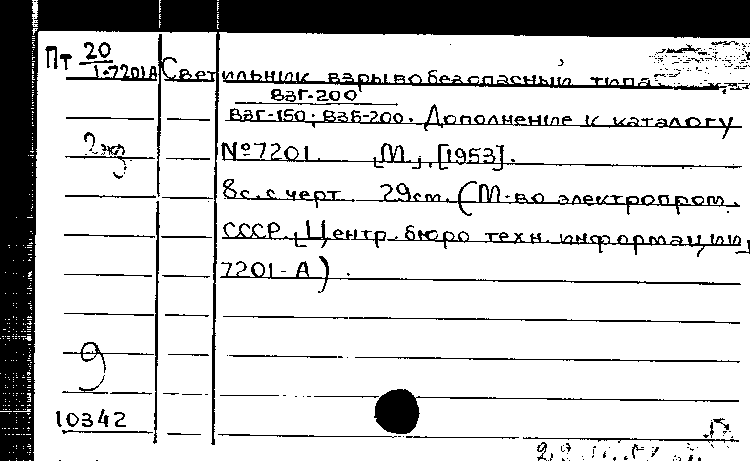 Пт 20
1-7201А
Светильник взрывобезопасный типа
ВЗГ-200
ВЗГ-150; ВЗБ-200. Дополнение к каталогу
2 яз
№7201. [М.], [1953].
8с. с черт. 29см. (М-во электропром.
СССР. Центр. бюро техн. информации,
7201-А).
9
10342